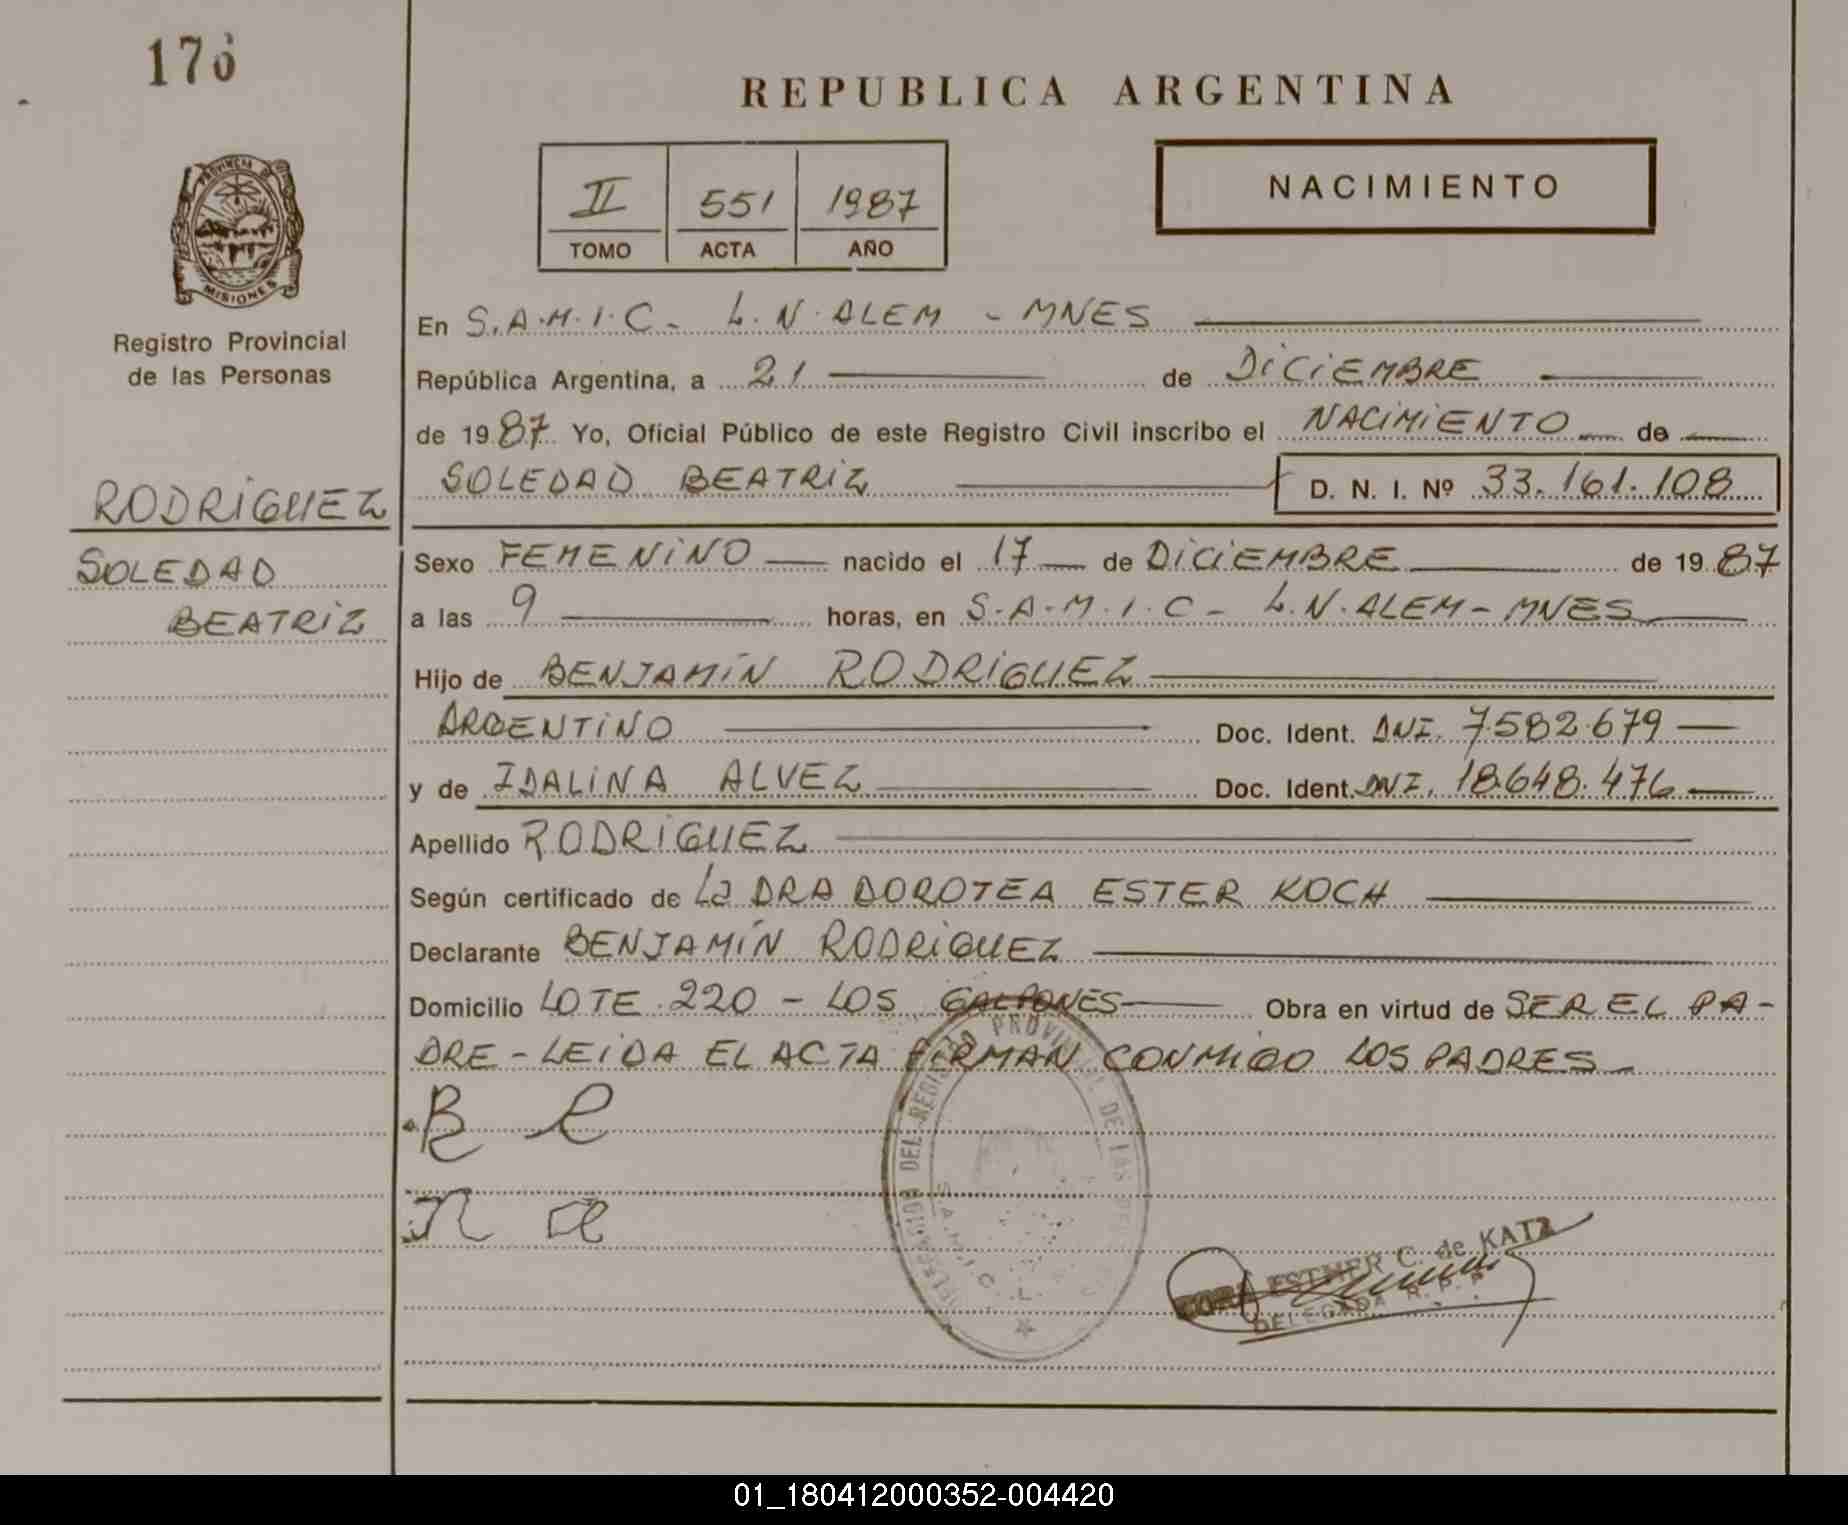 176
REPUBLICA ARGENTINA
PROVINCIA D
MISIONES
Registro Provincial
de las Personas
II 551 1987
TOMO ACTA AÑO
NACIMIENTO
En S.A.M.I.C - L.N.ALEM - MNES
República Argentina, a 21 de DiCiEMBRE
de 1987 Yo, Oficial Público de este Registro Civil inscribo el NACIMIENTO de
SOLEDAD BEATRIZ D. N. I. Nº 33.161.108
RODRIGUEZ
SOLEDAD
BEATRIZ
Sexo FEMENINO nacido el 17 de DICIEMBRE de 1987
a las 9 horas, en S.A.M.I.C - L.N.ALEM - MNES
Hijo de BENJAMÍN RODRIGUEZ
ARGENTINO Doc. Ident. DNI. 7.582.679
y de IDALINA ALVEZ Doc. Ident. DNI. 18.648.476
Apellido RODRIGUEZ
Según certificado de La DRA DOROTEA ESTER KOCH
Declarante BENJAMÍN RODRIGUEZ
Domicilio LOTE 220 - LOS GALPONES Obra en virtud de SER EL PA-
DRE - LEIDA EL ACTA FIRMAN CONMIGO LOS PADRES
DEL REGISTRO PROVINCIAL DE LAS
S.A.M.I.C. L.
ESTHER C. de KATZ
DELEGADA R. P. P.
01_180412000352-004420